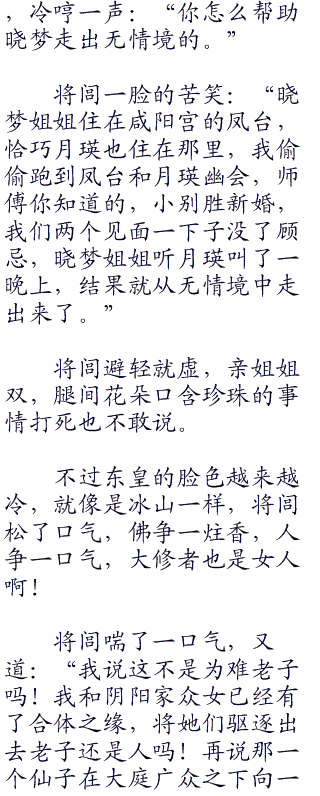 ，冷哼一声：“你怎么帮助
晓梦走出无情境的。”
将闾一脸的苦笑：“晓
梦姐姐住在咸阳宫的凤台，
恰巧月瑛也住在那里，我偷
偷跑到凤台和月瑛幽会，师
傅你知道的，小别胜新婚，
我们两个见面一下子没了顾
忌，晓梦姐姐听月瑛叫了一
晚上，结果就从无情境中走
出来了。”
将闾避轻就虚，亲姐姐
双，腿间花朵口含珍珠的事
情打死也不敢说。
不过东皇的脸色越来越
冷，就像是冰山一样，将闾
松了口气，佛争一炷香，人
争一口气，大修者也是女人
啊！
将闾喘了一口气，又
道：“我说这不是为难老子
吗！我和阴阳家众女已经有
了合体之缘，将她们驱逐出
去老子还是人吗！再说那一
个仙子在大庭广众之下向一